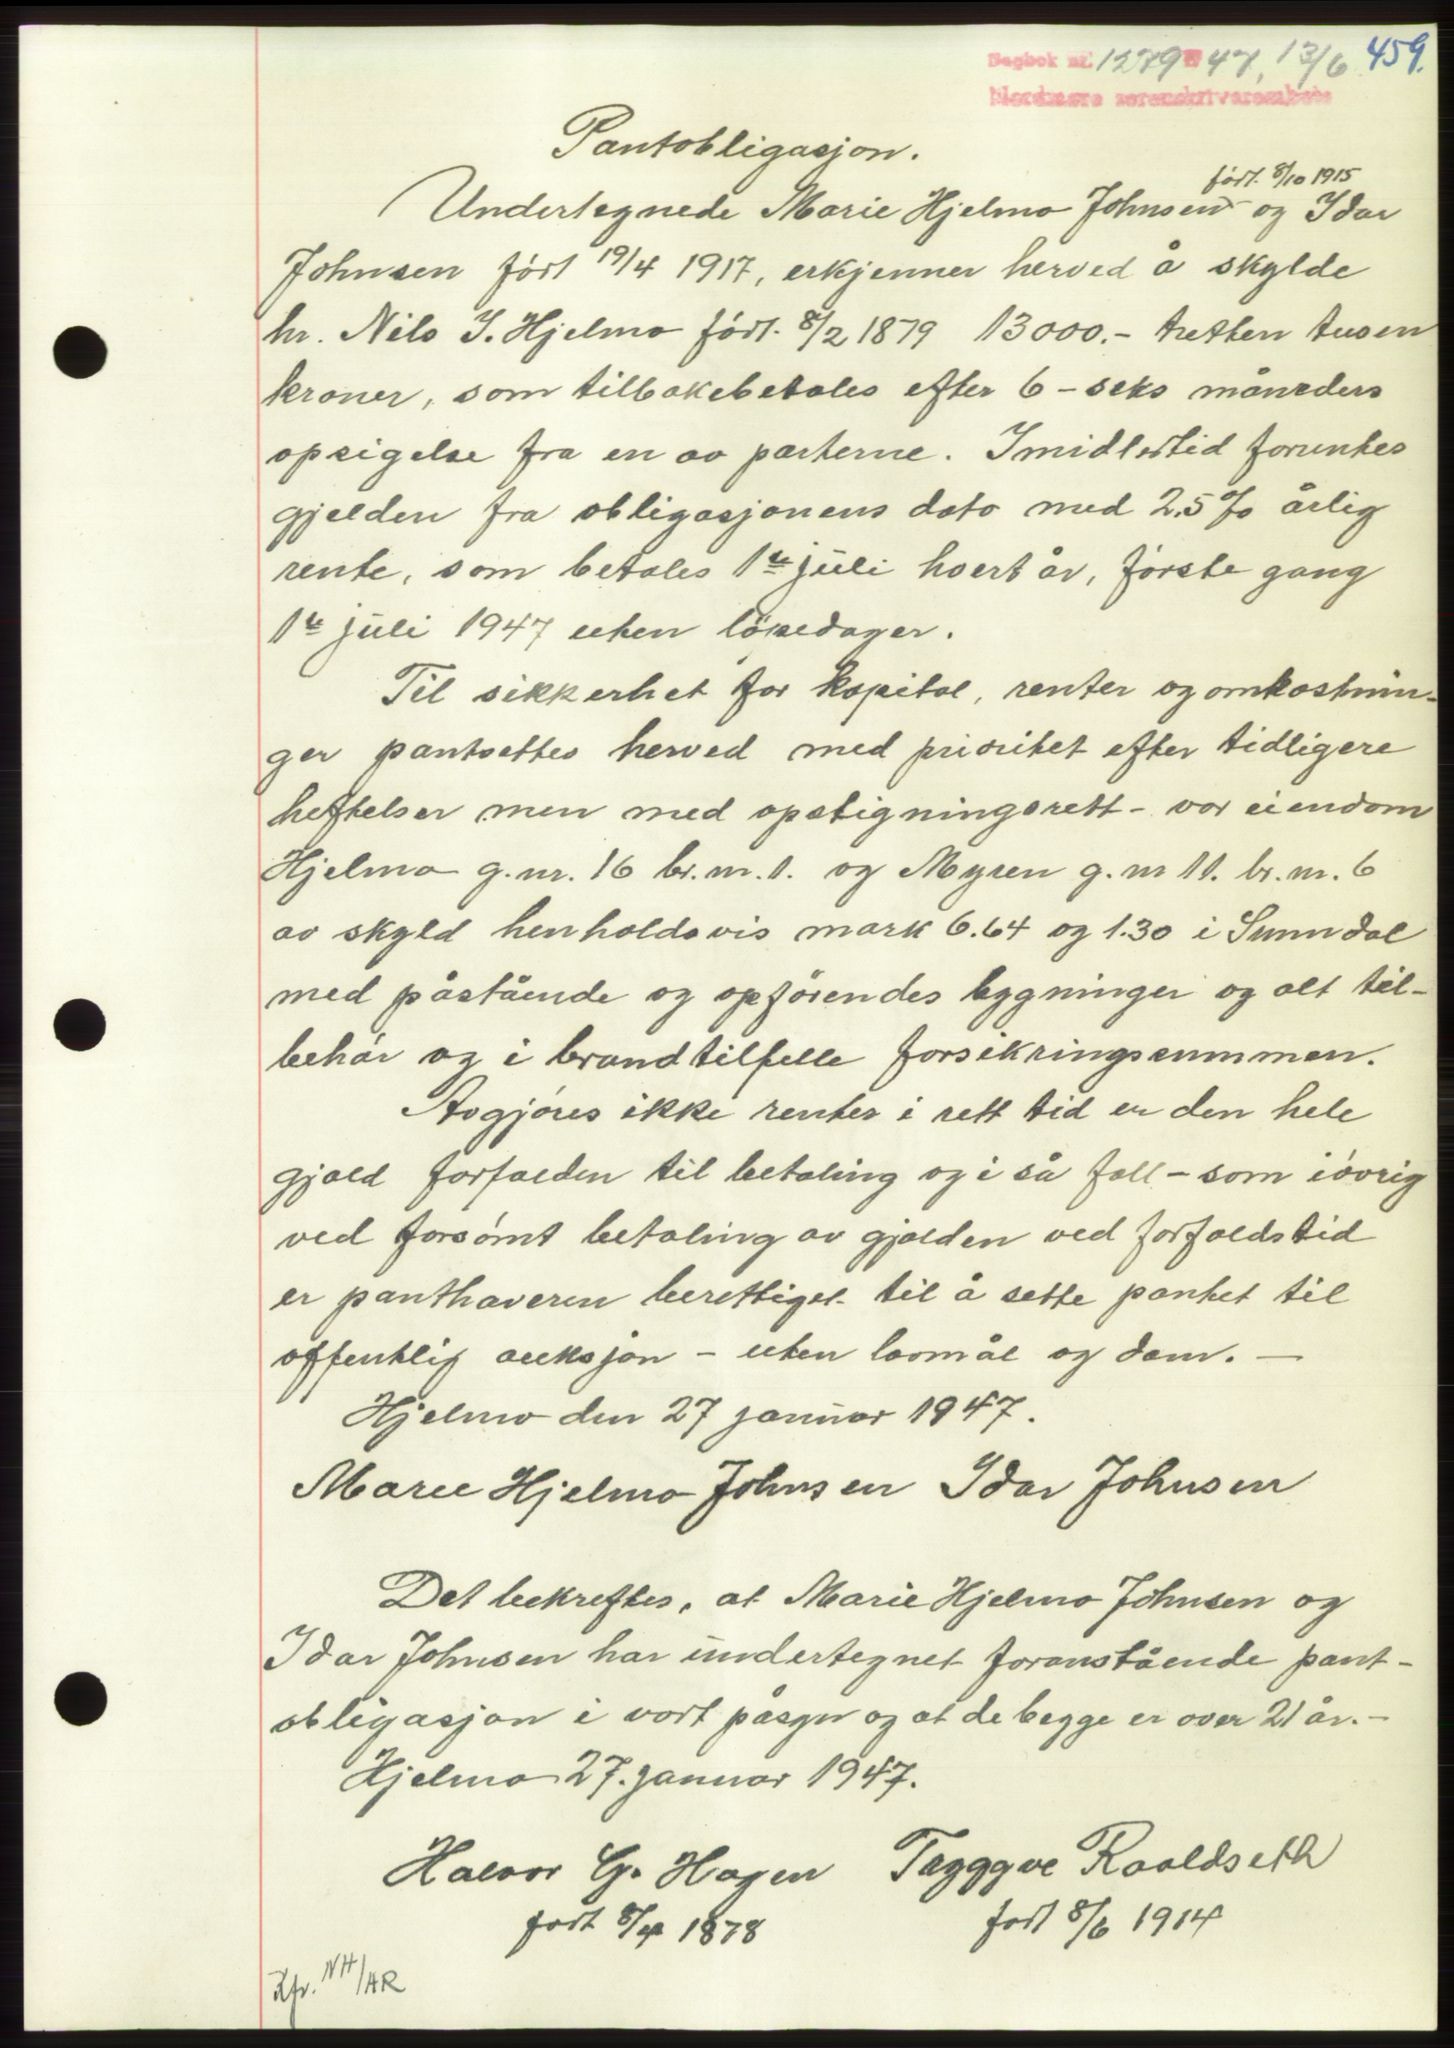 Dagbok nr. 1279 47, 13/6 459.
Nordmøre sorenskriverembete
Pantobligasjon.
født 8/10 1915
Undertegnede Marie Hjelmo Johnsen og Idar
Johnsen født 19/4 1917, erkjenner herved å skylde
hr. Nils I. Hjelmo født 8/2 1879 13000.- tretten tusen
kroner, som tilbakebetales efter 6 - seks måneders
opsigelse fra en av parterne. Imidlertid forrentes
gjelden fra obligasjonens dato med 2.5% årlig
rente, som betales 1ste juli hvert år, første gang
1ste juli 1947 uten löpedager.
Til sikkerhet for kapital, renter og omkostnin-
ger pantsettes herved med prioritet efter tidligere
heftelser men med opstigningsrett - vor eiendom
Hjelmo g.nr. 16 br.nr. 1. og Myren g.nr 11. br.nr. 6
av skyld henholdsvis mark 6.64 og 1.30 i Sunndal
med påstående og opførendes bygninger og alt til-
behør og i brandtilfelle forsikringssummen.
Avgjøres ikke renter i rett tid er den hele
gjæld forfalden til betaling og i så fall - som i øvrig
ved forsømt betaling av gjælden ved forfaldstid
er panthaveren berettiget til å sette pantet til
offentlig auksjon - uten lovmål og dom. -
Hjelmo den 27 januar 1947.
Marie Hjelmo Johnsen Idar Johnsen
Det bekreftes, at Marie Hjelmo Johnsen og
Idar Johnsen har undertegnet foranstående pant-
obligasjon i vort påsyn og at de begge er over 21 år. -
Hjelmo 27. januar 1947.
Halvor G. Hagen Tryggve Roaldseth
født 8/4 1878 født 8/6 1914
Kfr. NH/AR